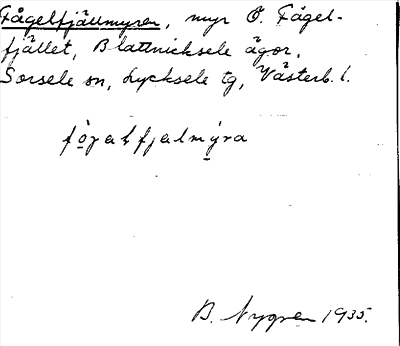 Fågelfjällmyren, myr Ö. Fågel-
fjället, Blattnicksele ägor,
Sorsele sn, Lycksele tg, Västerb. l.
fo̱gəlfjalmy̱ra
B. Nygren 1935.